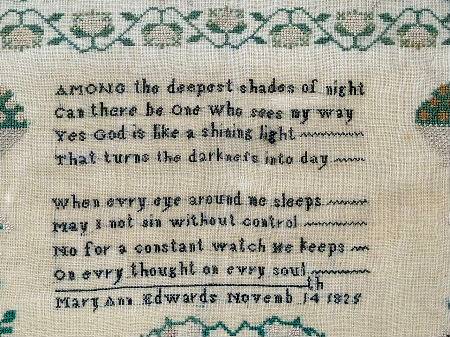 AMONG the deepest shades of night
Can there be One Who sees my way
Yes God is like a shining light
That turns the darkneſs into day
When evry eye around me sleeps
May I not sin without control
No for a constant watch He keeps
On evry thought on evry soul
Mary Ann Edwards Novemb 14th 1825